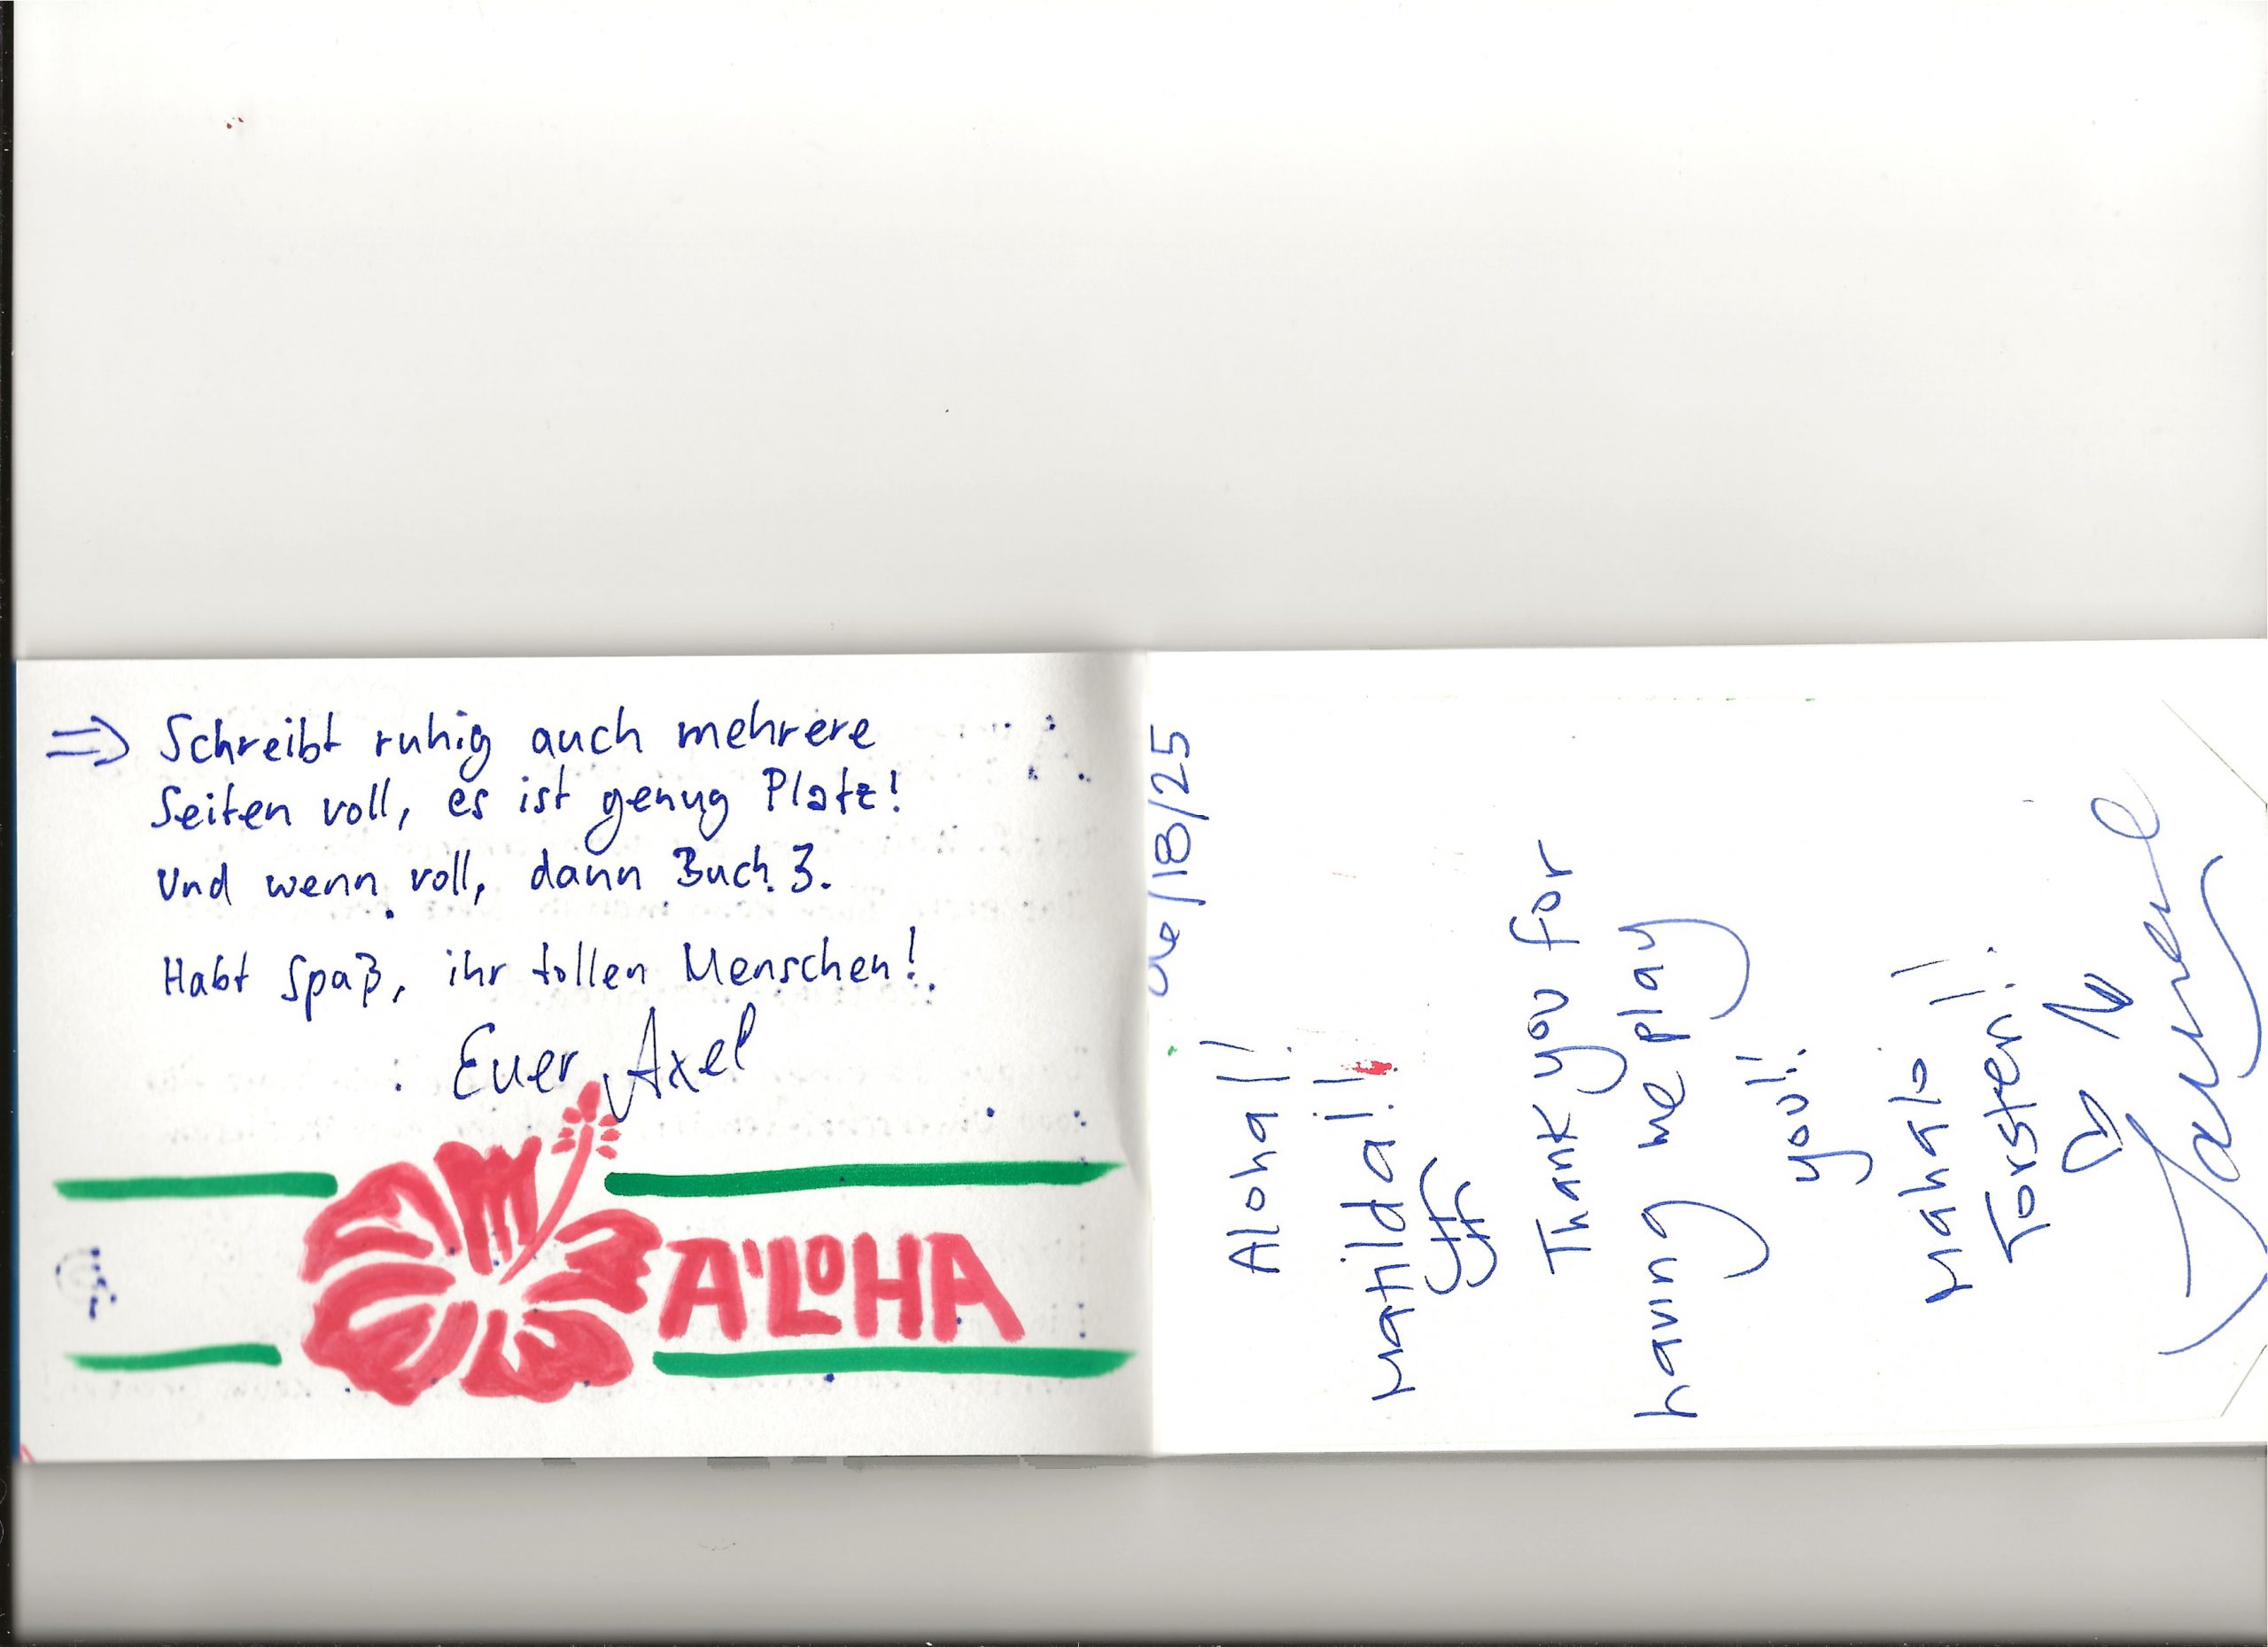 ⇒ Schreibt ruhig auch mehrere
Seiten voll, es ist genug Platz!
Und wenn voll, dann Buch 3.
Habt Spaß, ihr tollen Menschen!
Euer Axel
A'LOHA
06/18/25
Aloha!!
Matilda!!
Thank you for
having me play
you!!
Mahalo!!
Torsten!!